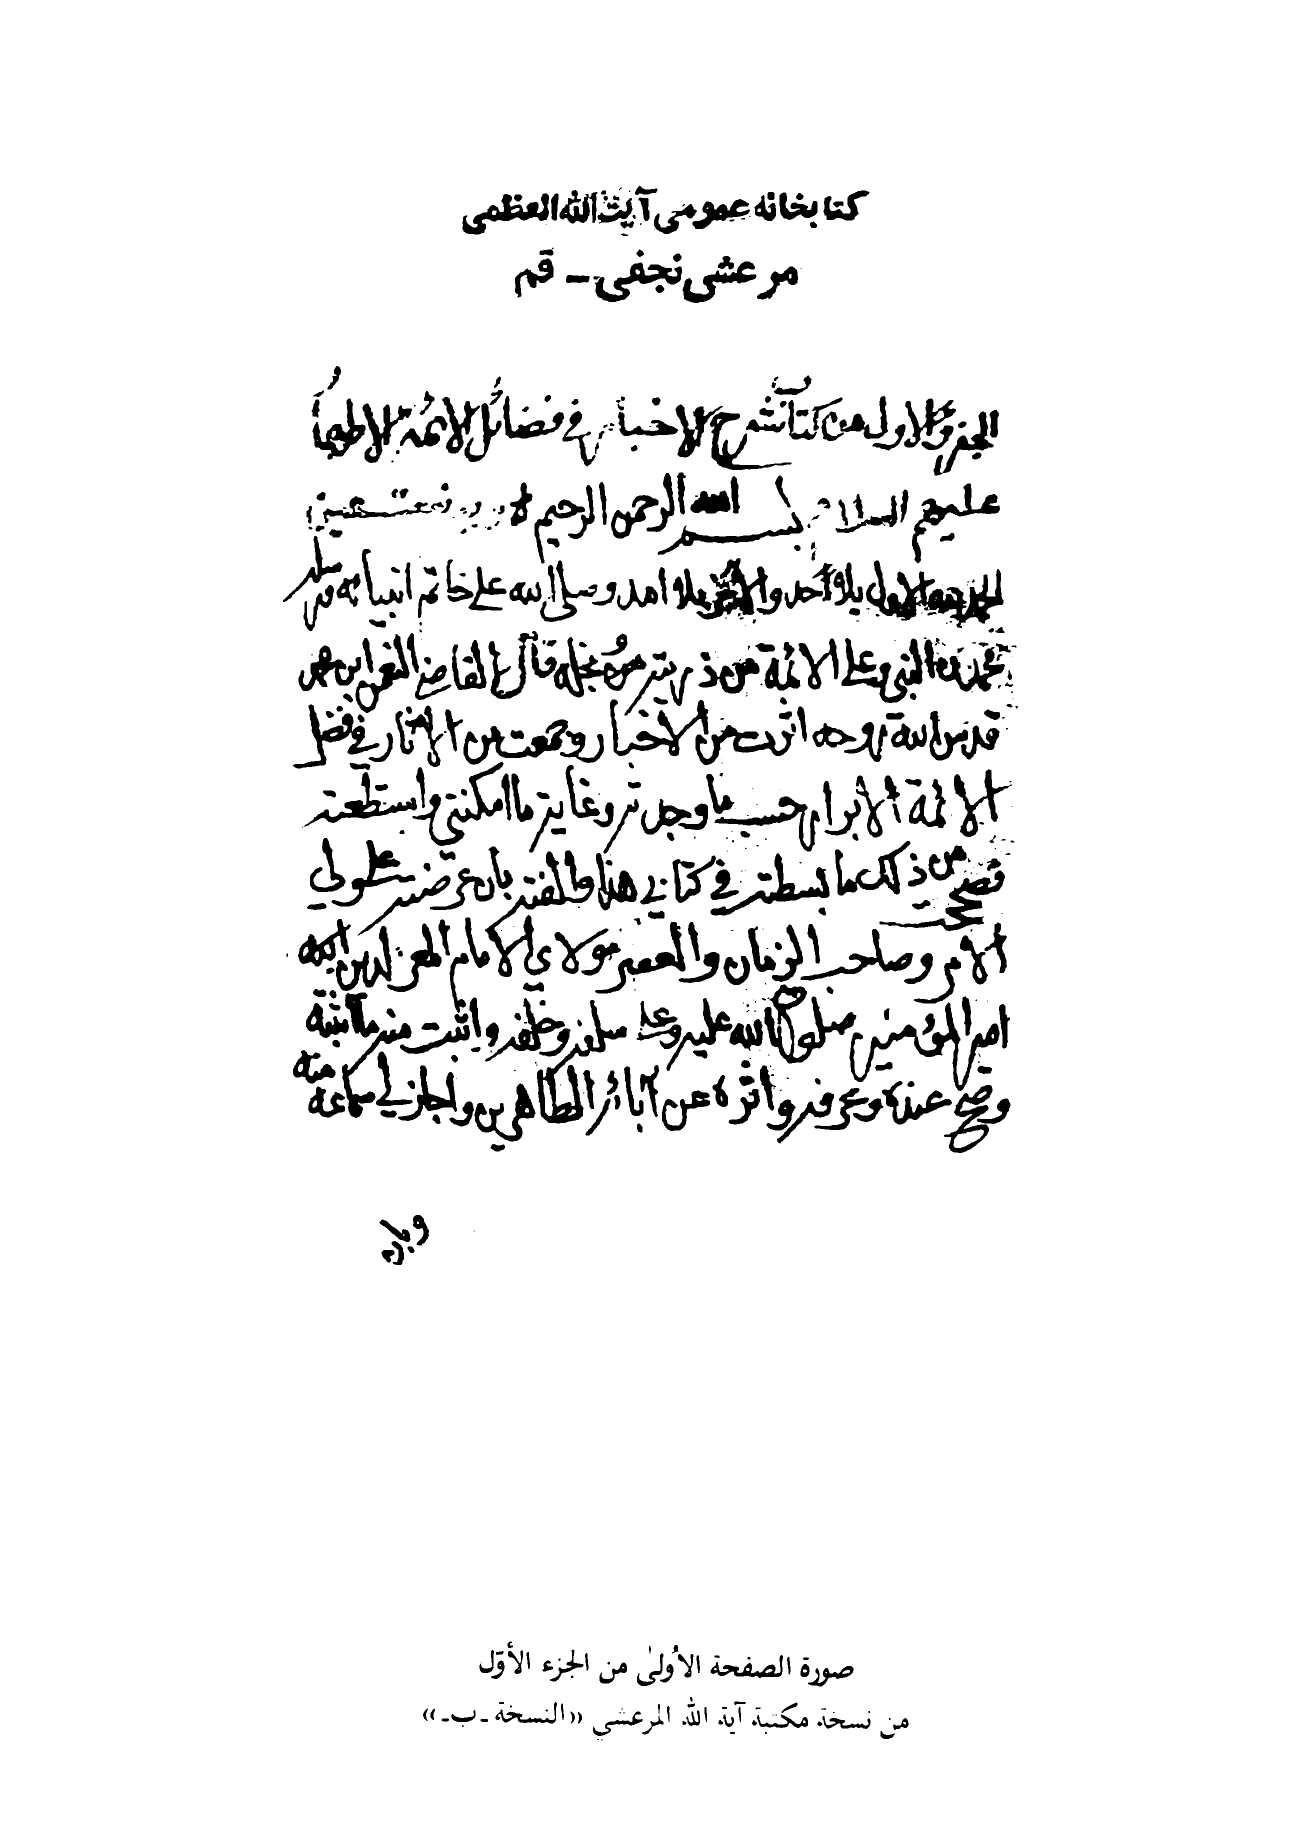 كتابخانه عمومى آيت الله العظمى
مرعشى نجفى - قم
الجزؤ الاول من كتاب شرح الاخبار في فضائل الائمة الاطهار
عليهم السلام بسم الله الرحمن الرحيم وبه نستعين
الحمد لله الاول بلا أحد والآخر بلا امد وصلى الله على خاتم انبيائه ورسله
محمد النبي وعلى الائمة من ذريته ونجله قال القاضي النعمن ابن محمد
قدس الله روحه اثرت من الاخبار وجمعت من الاثار في فضل
الائمة الابرار حسب ما وجدته وغاية ما امكنني واستطعته
فصححت من ذلك ما بسطته في كتابي هذا والفته بان عرضته على ولي
الامر وصاحب الزمان والعصر مولاي الامام المعز لدين الله
امير المؤمنين صلوات الله عليه وعلى سلفه وخلفه واثبت منه ما اثبته
وصح عنده وعرفه واثره عن آبائه الطاهرين واجاز لي سماعه منه
وبان
صورة الصفحة الأولىٰ من الجزء الأوّل
من نسخة مكتبة آية الله المرعشي «النسخة ـ ب ـ»